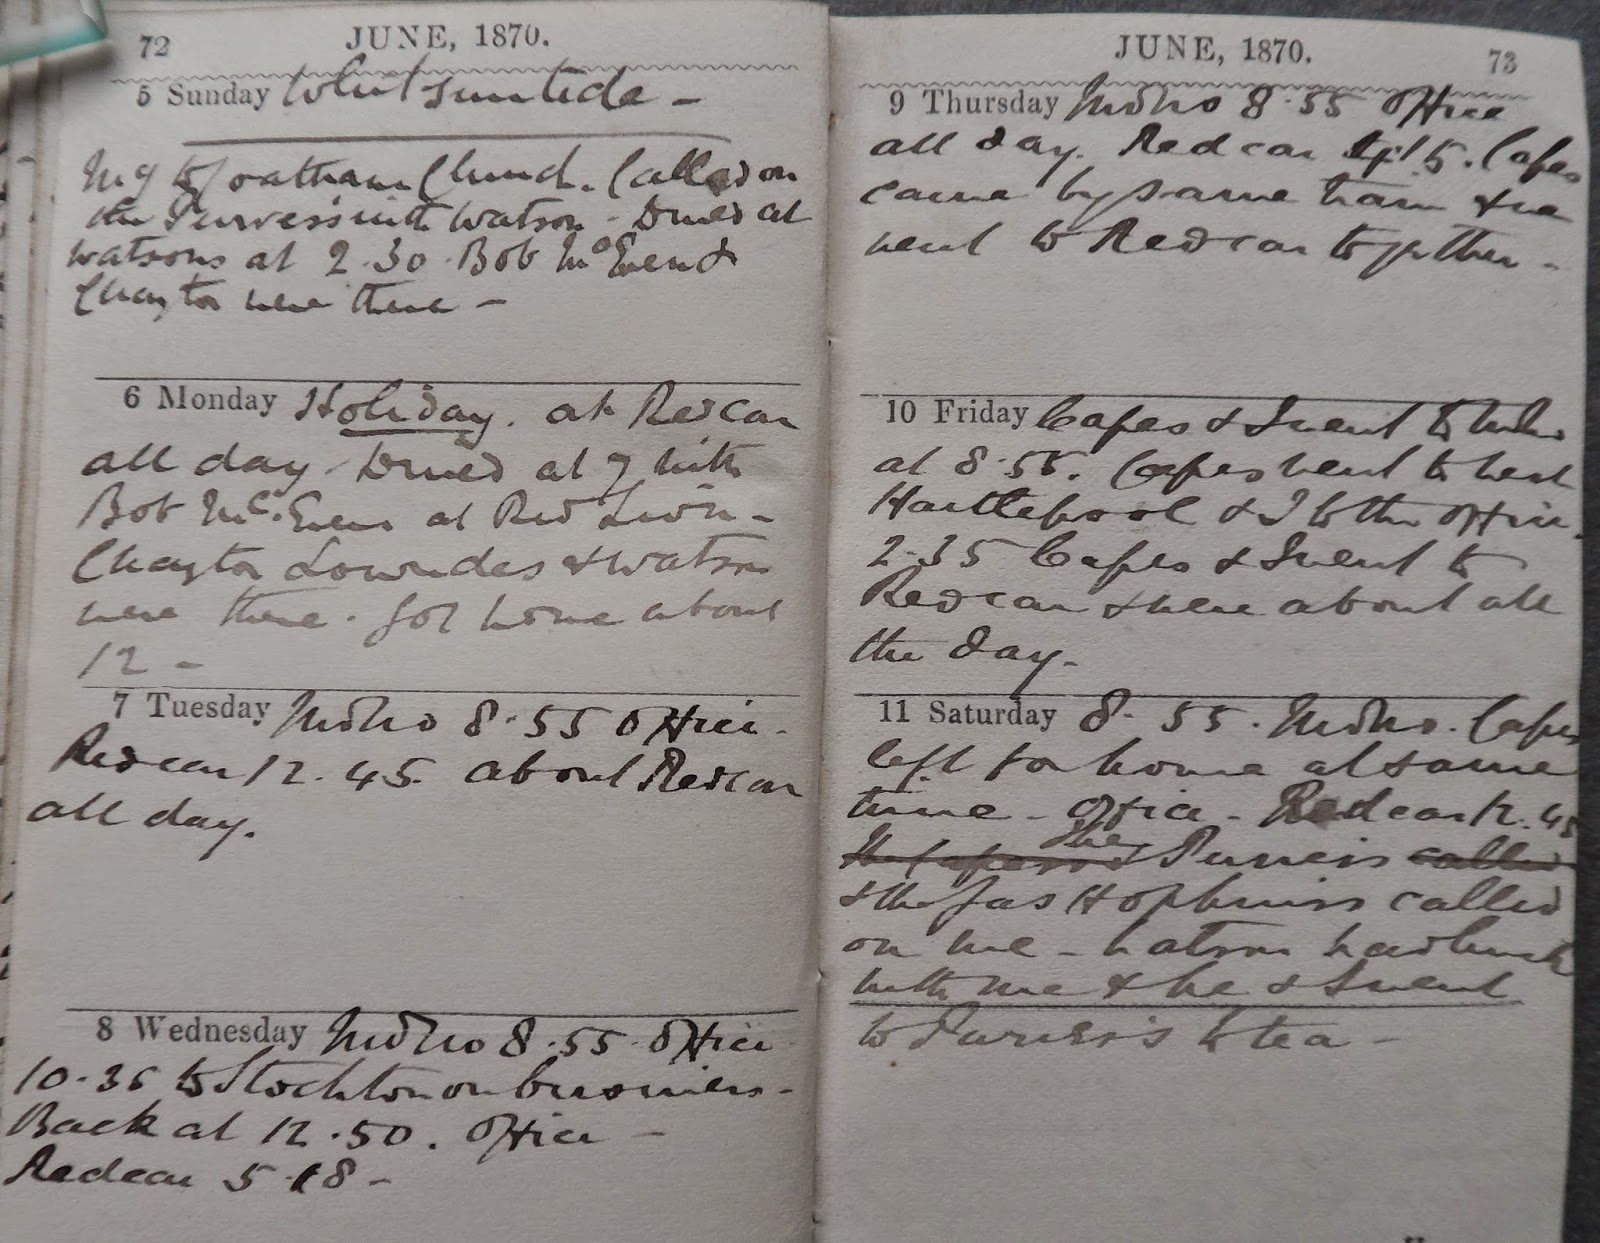 72
JUNE, 1870.
5 Sunday Whitsuntide -
to Coatham Church. Called on
the Purves's with Watson - Dined at
Watsons at 2.30. Bob McEwen &
Chayton were there -
6 Monday Holiday. at Redcar
all day. Dined at 7 with
Bob McEwen at Red Lion -
Chayton Lowndes & Watson
were there. Got home about
12 -
7 Tuesday Mdbro 8.55 Office.
Redcar 12.45. about Redcar
all day.
8 Wednesday Mdbro 8.55 Office
10.35 to Stockton on business -
Back at 12.50. Office -
Redcar 5.18 -
JUNE, 1870.
73
9 Thursday Mdbro 8.55 Office
all day. Redcar 5. Capes
came by same train & we
went to Redcar together -
10 Friday Capes & I went to Mdbro
at 8.55. Capes went to West
Hartlepool & I to the Office.
2.35 Capes & I went to
Redcar & were about all
the day.
11 Saturday 8.55. Mdbro. Capes
left for home at same
time - Office - Redcar 12.45
The Purves's called
& the Jas Hopkins's called
on me - Watson had lunch
with me & he & I went
to Purves's to tea -